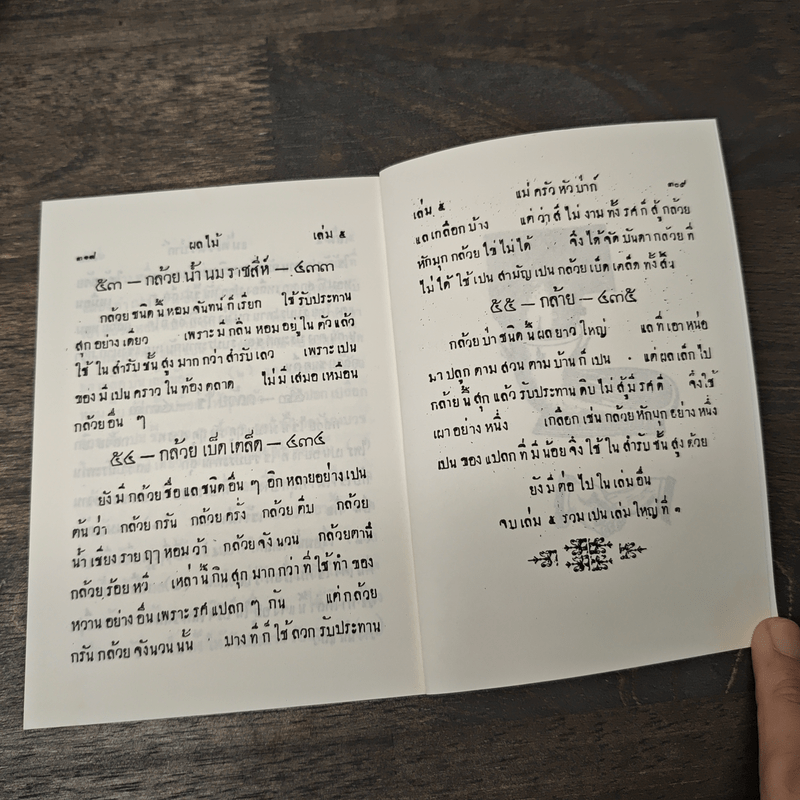 ๓๑๘ ผลไม้ เล่ม ๕
๕๓ — กล้วย น้ำ นม ราชสีห์ — ๔๓๓
กล้วย ชนิด นี้ หอม จันทน์ ก็ เรียก ใช้ รับประทาน
สุก อย่าง เดียว เพราะ มี กลิ่น หอม อยู่ ใน ตัว แล้ว
ใช้ ใน สำรับ ชั้น สูง มาก กว่า สำรับ เลว เพราะ เปน
ของ มี เปน คราว ใน ท้อง ตลาด ไม่ มี เสมอ เหมือน
กล้วย อื่น ๆ
๕๔ — กล้วย เบ็ด เตล็ด — ๔๓๔
ยัง มี กล้วย ชื่อ แล ชนิด อื่น ๆ อิก หลาย อย่าง เปน
ต้น ว่า กล้วย กรัน กล้วย ครั่ง กล้วย ตีบ กล้วย
น้ำ เชียง ราย ฤๅ หอม ว้า กล้วย จัง นวน กล้วย ตานี
กล้วย ร้อย หวี เหล่า นี้ กิน สุก มาก กว่า ที่ ใช้ ทำ ของ
หวาน อย่าง อื่น เพราะ รศ แปลก ๆ กัน แต่ กล้วย
กรัน กล้วย จังนวน นั้น บาง ที ก็ ใช้ ลวก รับประทาน
เล่ม ๕ แม่ ครัว หัว ป่าก์ ๓๑๙
แล เกลือก บ้าง แต่ ว่า สี ไม่ งาม ทั้ง รศ ก็ สู้ กล้วย
หักมุก กล้วย ไข่ ไม่ ได้ จึง ได้ จัด บันดา กล้วย ที่
ไม่ ได้ ใช้ เปน สามัญ เปน กล้วย เบ็ด เตล็ด ทั้ง สิ้น
๕๕ — กล้าย — ๔๓๕
กล้วย ป่า ชนิด นี้ ผล ยาว ใหญ่ แล ที่ เอา หน่อ
มา ปลูก ตาม สวน ตาม บ้าน ก็ เปน แต่ ผล เล็ก ไป
กล้าย นี้ สุก แล้ว รับประทาน ดิบ ไม่ สู้ มี รศ ดี จึ่ง ใช้
เผา อย่าง หนึ่ง เกลือก เช่น กล้วย หักมุก อย่าง หนึ่ง
เปน ของ แปลก ที่ มี น้อย จึ่ง ใช้ ใน สำรับ ชั้น สูง ด้วย
ยัง มี ต่อ ไป ใน เล่ม อื่น
จบ เล่ม ๕ รวม เปน เล่ม ใหญ่ ที่ ๑